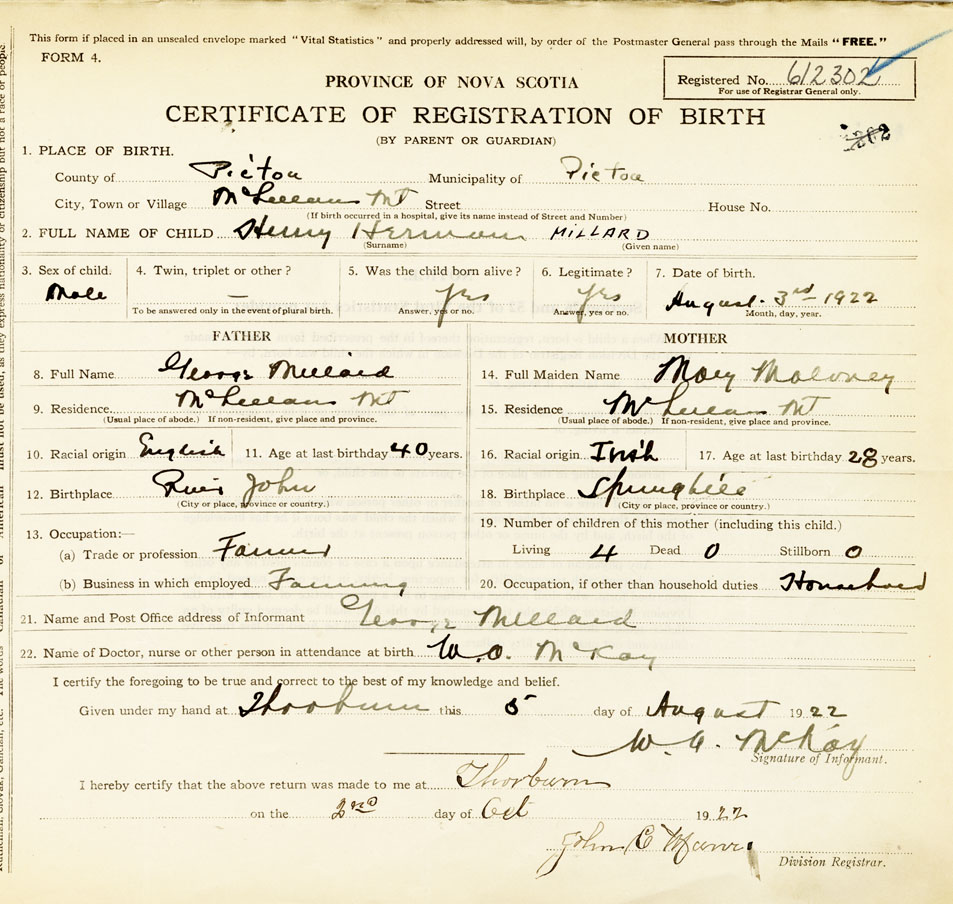 This form if placed in an unsealed envelope marked "Vital Statistics" and properly addressed will, by order of the Postmaster General pass through the Mails "FREE."
FORM 4.
PROVINCE OF NOVA SCOTIA
Registered No. 612302
For use of Registrar General only.
CERTIFICATE OF REGISTRATION OF BIRTH
(BY PARENT OR GUARDIAN)
1. PLACE OF BIRTH.
County of Pictou Municipality of Pictou
City, Town or Village McLellans Mt Street House No.
(If birth occurred in a hospital, give its name instead of Street and Number)
2. FULL NAME OF CHILD Henry Herman MILLARD
(Surname) (Given name)
3. Sex of child. 4. Twin, triplet or other? 5. Was the child born alive? 6. Legitimate? 7. Date of birth.
Male — yes yes August 3rd 1922
To be answered only in the event of plural birth. Answer, yes or no. Answer, yes or no. Month, day, year.
FATHER MOTHER
8. Full Name George Millard 14. Full Maiden Name Mary Maloney
9. Residence McLellans Mt 15. Residence McLellans Mt
(Usual place of abode.) If non-resident, give place and province. (Usual place of abode.) If non-resident, give place and province.
10. Racial origin English 11. Age at last birthday 40 years. 16. Racial origin Irish 17. Age at last birthday 28 years.
12. Birthplace River John 18. Birthplace Springhill
(City or place, province or country.) (City or place, province or country.)
13. Occupation:— 19. Number of children of this mother (including this child.)
(a) Trade or profession Farmer Living 4 Dead 0 Stillborn 0
(b) Business in which employed Farming 20. Occupation, if other than household duties
21. Name and Post Office address of Informant George Millard
22. Name of Doctor, nurse or other person in attendance at birth W. A. McKay
I certify the foregoing to be true and correct to the best of my knowledge and belief.
Given under my hand at Thorburn this 5 day of August 1922
W. A. McKay
Signature of Informant.
I hereby certify that the above return was made to me at Thorburn
on the 2nd day of Oct 1922
John C
Division Registrar.